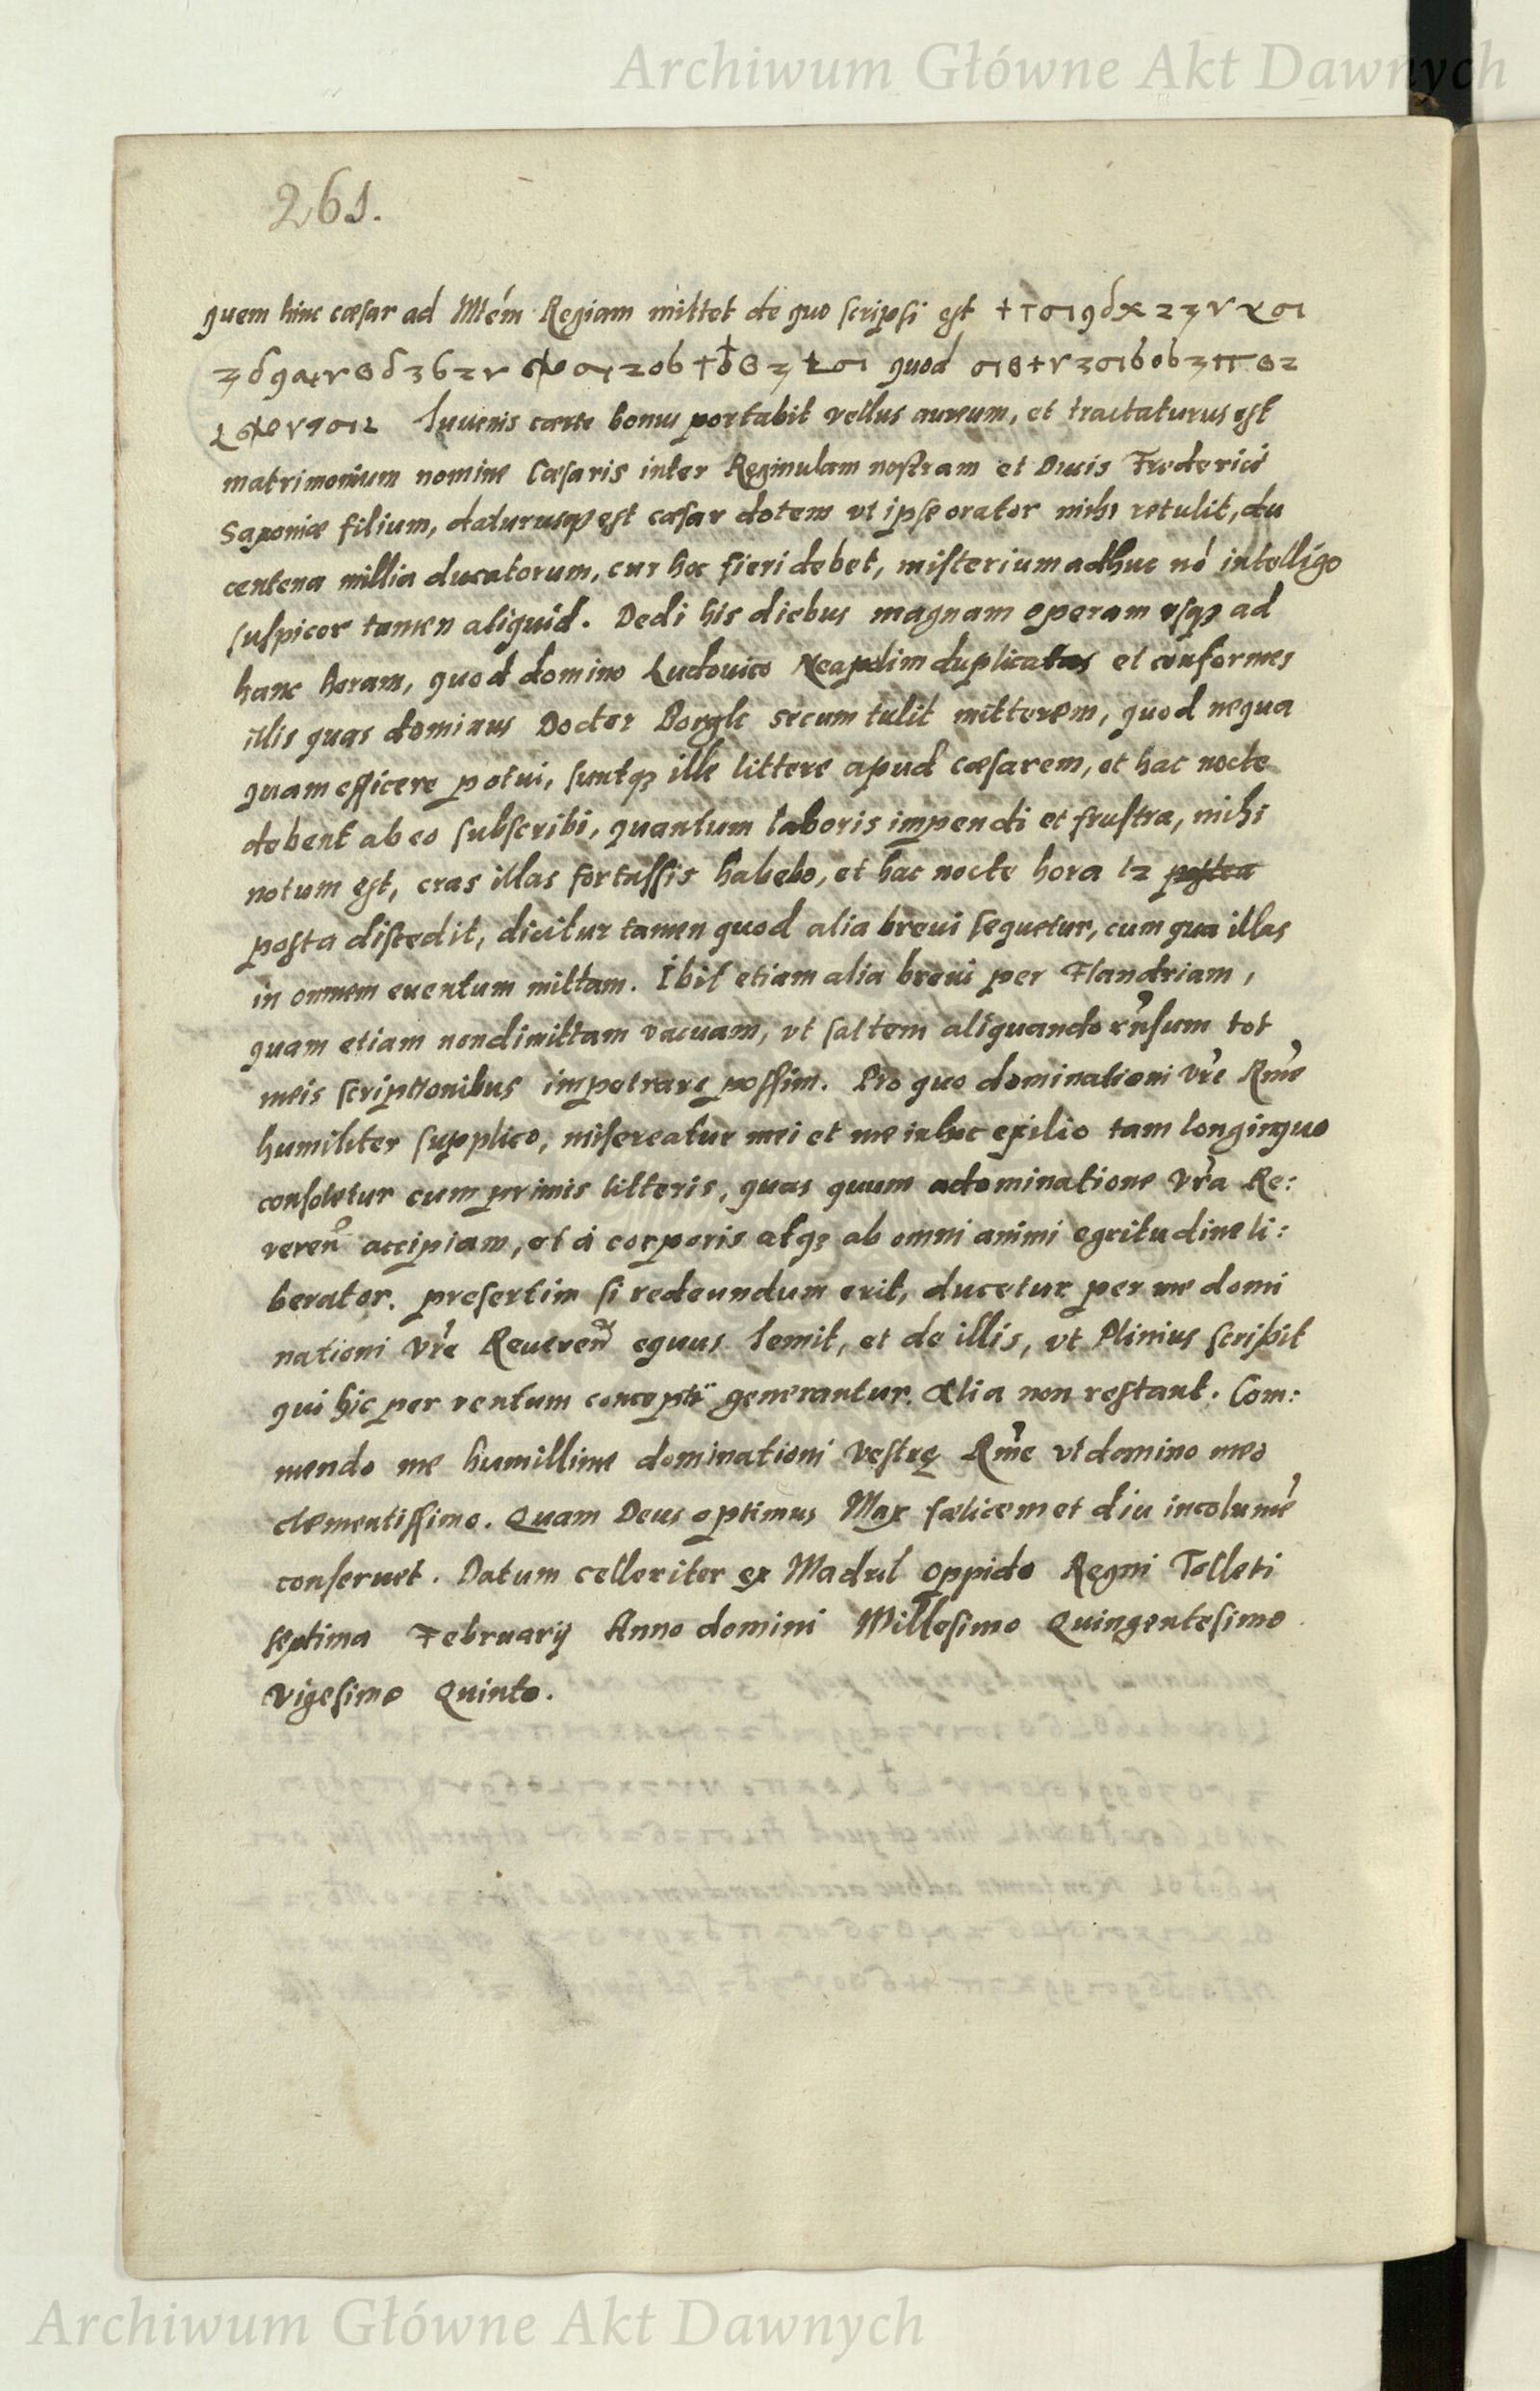 Archiwum Główne Akt Dawnych
261.
quem hinc cæsar ad Mtém Regiam mittet de quo scripsi est
quod
Iuuenis certe bonus portabit vellus aureum, et tractaturus est
matrimonium nomine Cæsaris inter Reginulam nostram et Ducis Frederici
Saxoniæ filium, daturusqȝ est cæsar dotem vt ipse orator mihi retulit, du
centena millia ducatorum, cur hoc fieri debet, misterium adhuc nō intelligo
suspicor tamen aliquid. Dedi his diebus magnam operam vsqȝ ad
hanc horam, quod domino Ludouico Neapolim duplicatas et conformes
illis quas dominus Doctor Borgk secum tulit mitterem, quod nequa
quam efficere potui, suntqȝ ille littere apud cæsarem, et hac nocte
debent ab eo subscribi, quantum laboris impendi et frustra, mihi
notum est, cras illas fortassis habebo, et hac nocte hora 12 postea
posta discedit, dicitur tamen quod alia breui sequetur, cum qua illas
in omnem euentum mittam. Ibit etiam alia breui per Flandriam,
quam etiam non dimittam vacuam, vt saltem aliquando rn̄sum tot
meis scriptionibus impetrare possim. Pro quo dominationi vr̄e Rm̄e
humiliter supplico, misereatur mei et me in hoc exilio tam longinquo
consoletur cum primis litteris, quas quum a dominatione vr̄a Re:
veren̄ accipiam, et á corporis atqȝ ab omni animi egritudine li:
berator. presertim si redeundum erit, ducetur per me domi
nationi vr̄e Reueren̄ equus Iemit, et de illis, vt Plinius scribit
qui hic per ventum concepti generantur. Alia non restant. Com:
mendo me humillime dominationi Vestrę Rm̄e vt domino meo
clementissimo. Quam Deus optimus Max fœlicem et diu incolumē
conseruet. Datum celleriter ex Madril oppido Regni Tolleti
septima Februarij Anno domini Millesimo Quingentesimo
vigesimo Quinto.
Archiwum Główne Akt Dawnych